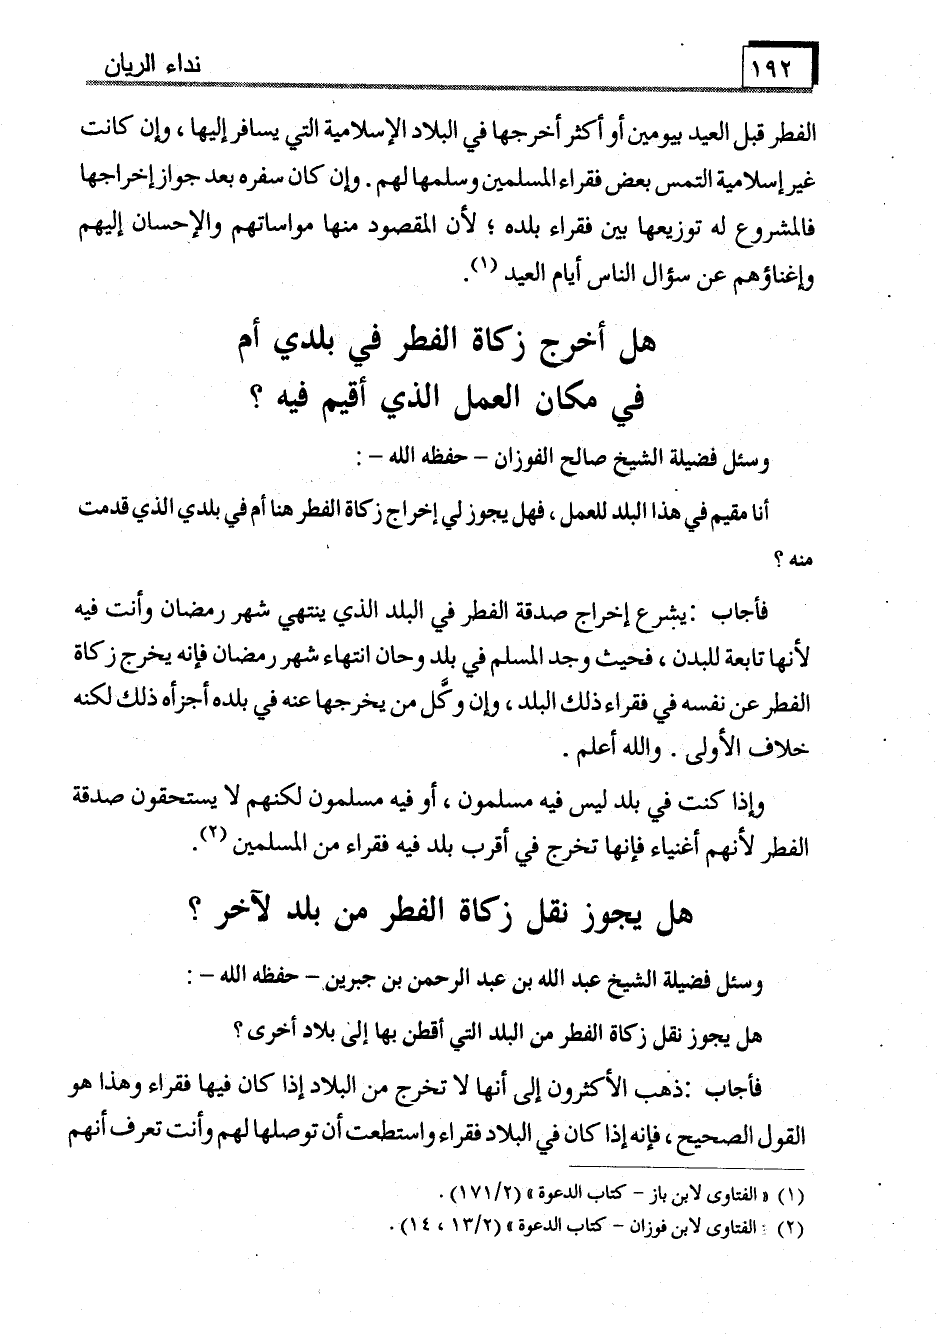 ١٩٢ نداء الريان
الفطر قبل العيد بيومين أو أكثر أخرجها في البلاد الإسلامية التي يسافر إليها ، وإن كانت
غير إسلامية التمس بعض فقراء المسلمين وسلمها لهم . وإن كان سفره بعد جواز إخراجها
فالمشروع له توزيعها بين فقراء بلده ؛ لأن المقصود منها مواساتهم والإحسان إليهم
وإغناؤهم عن سؤال الناس أيام العيد (١).
هل أخرج زكاة الفطر في بلدي أم
في مكان العمل الذي أقيم فيه ؟
وسئل فضيلة الشيخ صالح الفوزان – حفظه الله – :
أنا مقيم في هذا البلد للعمل ، فهل يجوز لي إخراج زكاة الفطر هنا أم في بلدي الذي قدمت
منه ؟
فأجاب : يشرع إخراج صدقة الفطر في البلد الذي ينتهي شهر رمضان وأنت فيه
لأنها تابعة للبدن ، فحيث وجد المسلم في بلد وحان انتهاء شهر رمضان فإنه يخرج زكاة
الفطر عن نفسه في فقراء ذلك البلد ، وإن وكَّل من يخرجها عنه في بلده أجزأه ذلك لكنه
خلاف الأولى . والله أعلم .
وإذا كنت في بلد ليس فيه مسلمون ، أو فيه مسلمون لكنهم لا يستحقون صدقة
الفطر لأنهم أغنياء فإنها تخرج في أقرب بلد فيه فقراء من المسلمين (٢).
هل يجوز نقل زكاة الفطر من بلد لآخر ؟
وسئل فضيلة الشيخ عبد الله بن عبد الرحمن بن جبرين – حفظه الله – :
هل يجوز نقل زكاة الفطر من البلد التي أقطن بها إلى بلاد أخرى ؟
فأجاب : ذهب الأكثرون إلى أنها لا تخرج من البلاد إذا كان فيها فقراء وهذا هو
القول الصحيح ، فإنه إذا كان في البلاد فقراء واستطعت أن توصلها لهم وأنت تعرف أنهم
(١) « الفتاوى لابن باز – كتاب الدعوة » (١٧١/٢) .
(٢) : الفتاوى لابن فوزان – كتاب الدعوة » (١٣/٢ ، ١٤) .